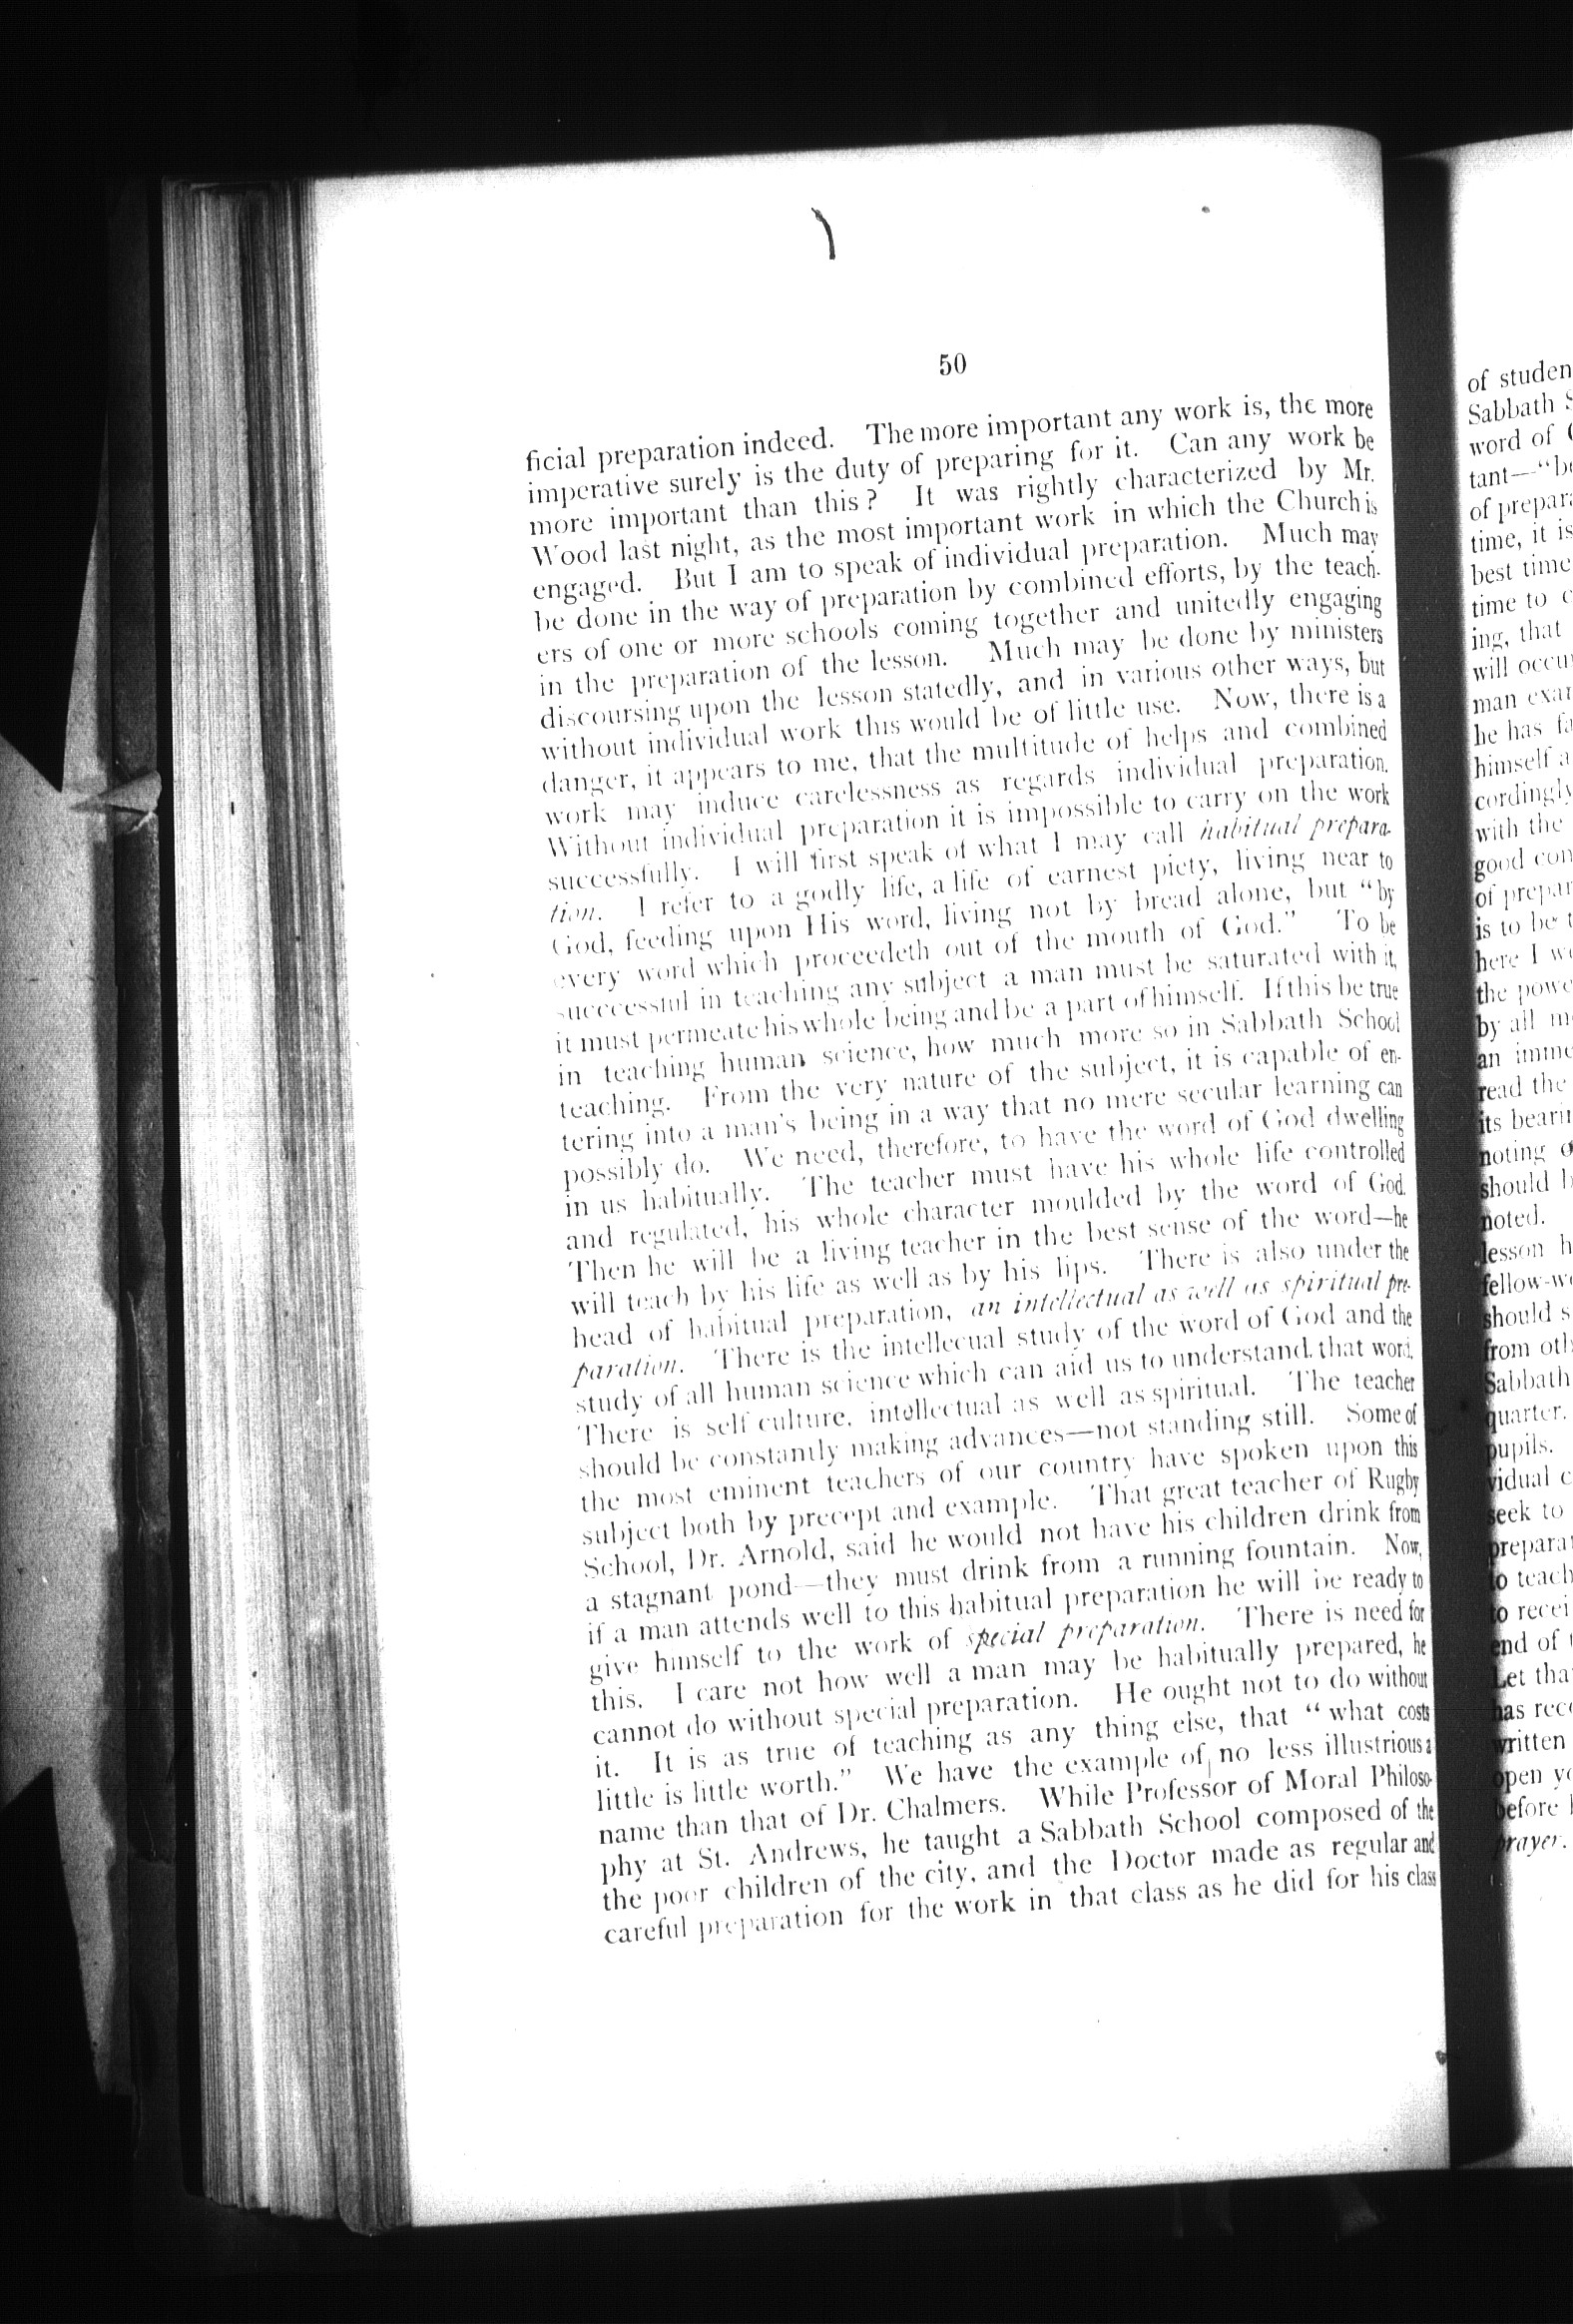 50
ficial preparation indeed. The more important any work is, the more
imperative surely is the duty of preparing for it. Can any work be
more important than this? It was rightly characterized by Mr.
Wood last night, as the most important work in which the Church is
engaged. But I am to speak of individual preparation. Much may
be done in the way of preparation by combined efforts, by the teach-
ers of one or more schools coming together and unitedly engaging
in the preparation of the lesson. Much may be done by ministers
discoursing upon the lesson statedly, and in various other ways, but
without individual work this would be of little use. Now, there is a
danger, it appears to me, that the multitude of helps and combined
work may induce carelessness as regards individual preparation.
Without individual preparation it is impossible to carry on the work
successfully. I will first speak of what I may call habitual prepara-
tion. I refer to a godly life, a life of earnest piety, living near to
God, feeding upon His word, living not by bread alone, but "by
every word which proceedeth out of the mouth of God." To be
succcessful in teaching any subject a man must be saturated with it,
it must permeate his whole being and be a part of himself. If this be true
in teaching human science, how much more so in Sabbath School
teaching. From the very nature of the subject, it is capable of en-
tering into a man's being in a way that no mere secular learning can
possibly do. We need, therefore, to have the word of God dwelling
in us habitually. The teacher must have his whole life controlled
and regulated, his whole character moulded by the word of God.
Then he will be a living teacher in the best sense of the word—he
will teach by his life as well as by his lips. There is also under the
head of habitual preparation, an intellectual as well as spiritual pre-
paration. There is the intellecual study of the word of God and the
study of all human science which can aid us to understand that word.
There is self culture, intellectual as well as spiritual. The teacher
should be constantly making advances—not standing still. Some of
the most eminent teachers of our country have spoken upon this
subject both by precept and example. That great teacher of Rugby
School, Dr. Arnold, said he would not have his children drink from
a stagnant pond—they must drink from a running fountain. Now,
if a man attends well to this habitual preparation he will be ready to
give himself to the work of special preparation. There is need for
this. I care not how well a man may be habitually prepared, he
cannot do without special preparation. He ought not to do without
it. It is as true of teaching as any thing else, that "what costs
little is little worth." We have the example of no less illustrious a
name than that of Dr. Chalmers. While Professor of Moral Philoso-
phy at St. Andrews, he taught a Sabbath School composed of the
the poor children of the city, and the Doctor made as regular and
careful preparation for the work in that class as he did for his class
of studen
Sabbath
word of
tant—"be
of prepara
time, it is
best time
time to
ing, that
will occu
man exa
he has fa
himself a
cordingly
with the
good con
of prepar
is to be t
here I w
the powe
by all m
an imme
read the
its bearin
noting
should b
noted.
lesson h
fellow-w
should s
from oth
Sabbath
quarter.
pupils.
vidual c
seek to
preparat
to teach
to recei
end of
Let tha
has rec
written
open yo
before
prayer.